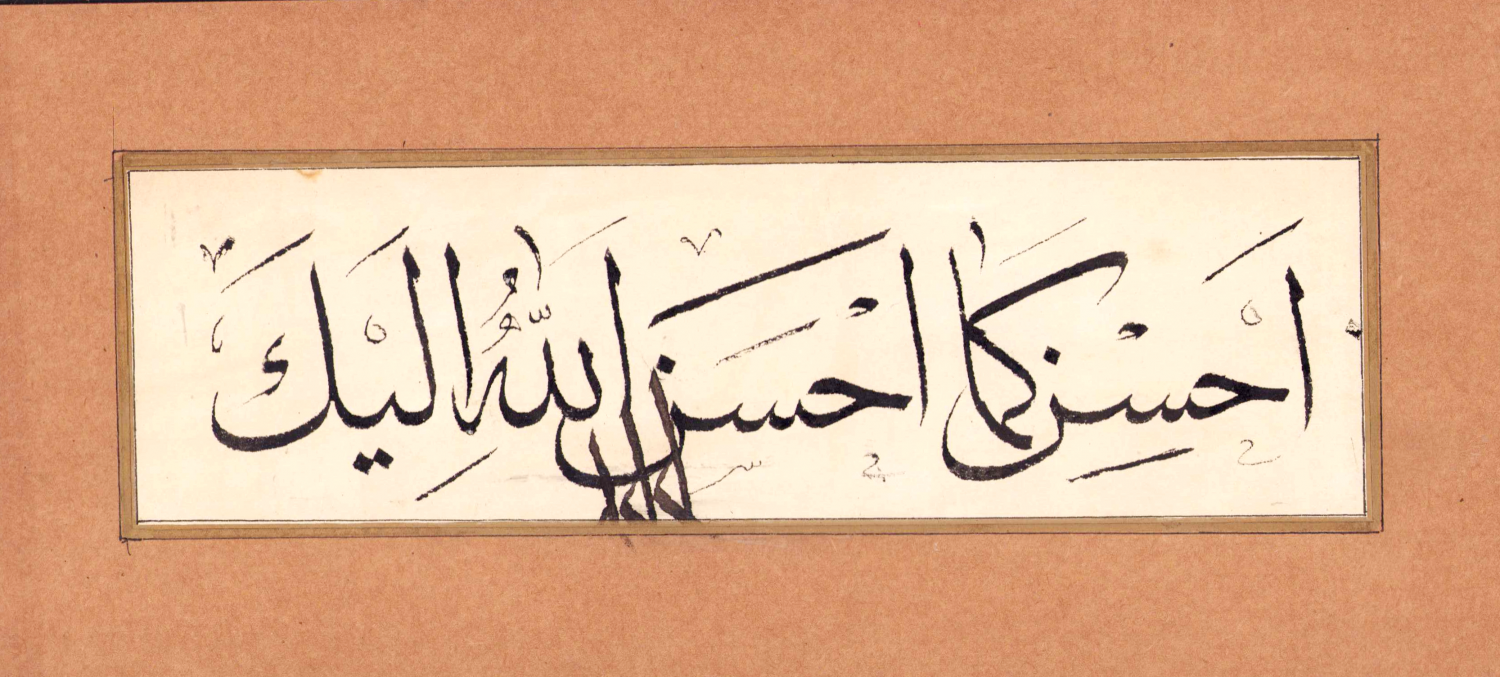 اَحْسِنْ كَمَا اَحْسَنَ اللّٰهُ اِلَيْكَ